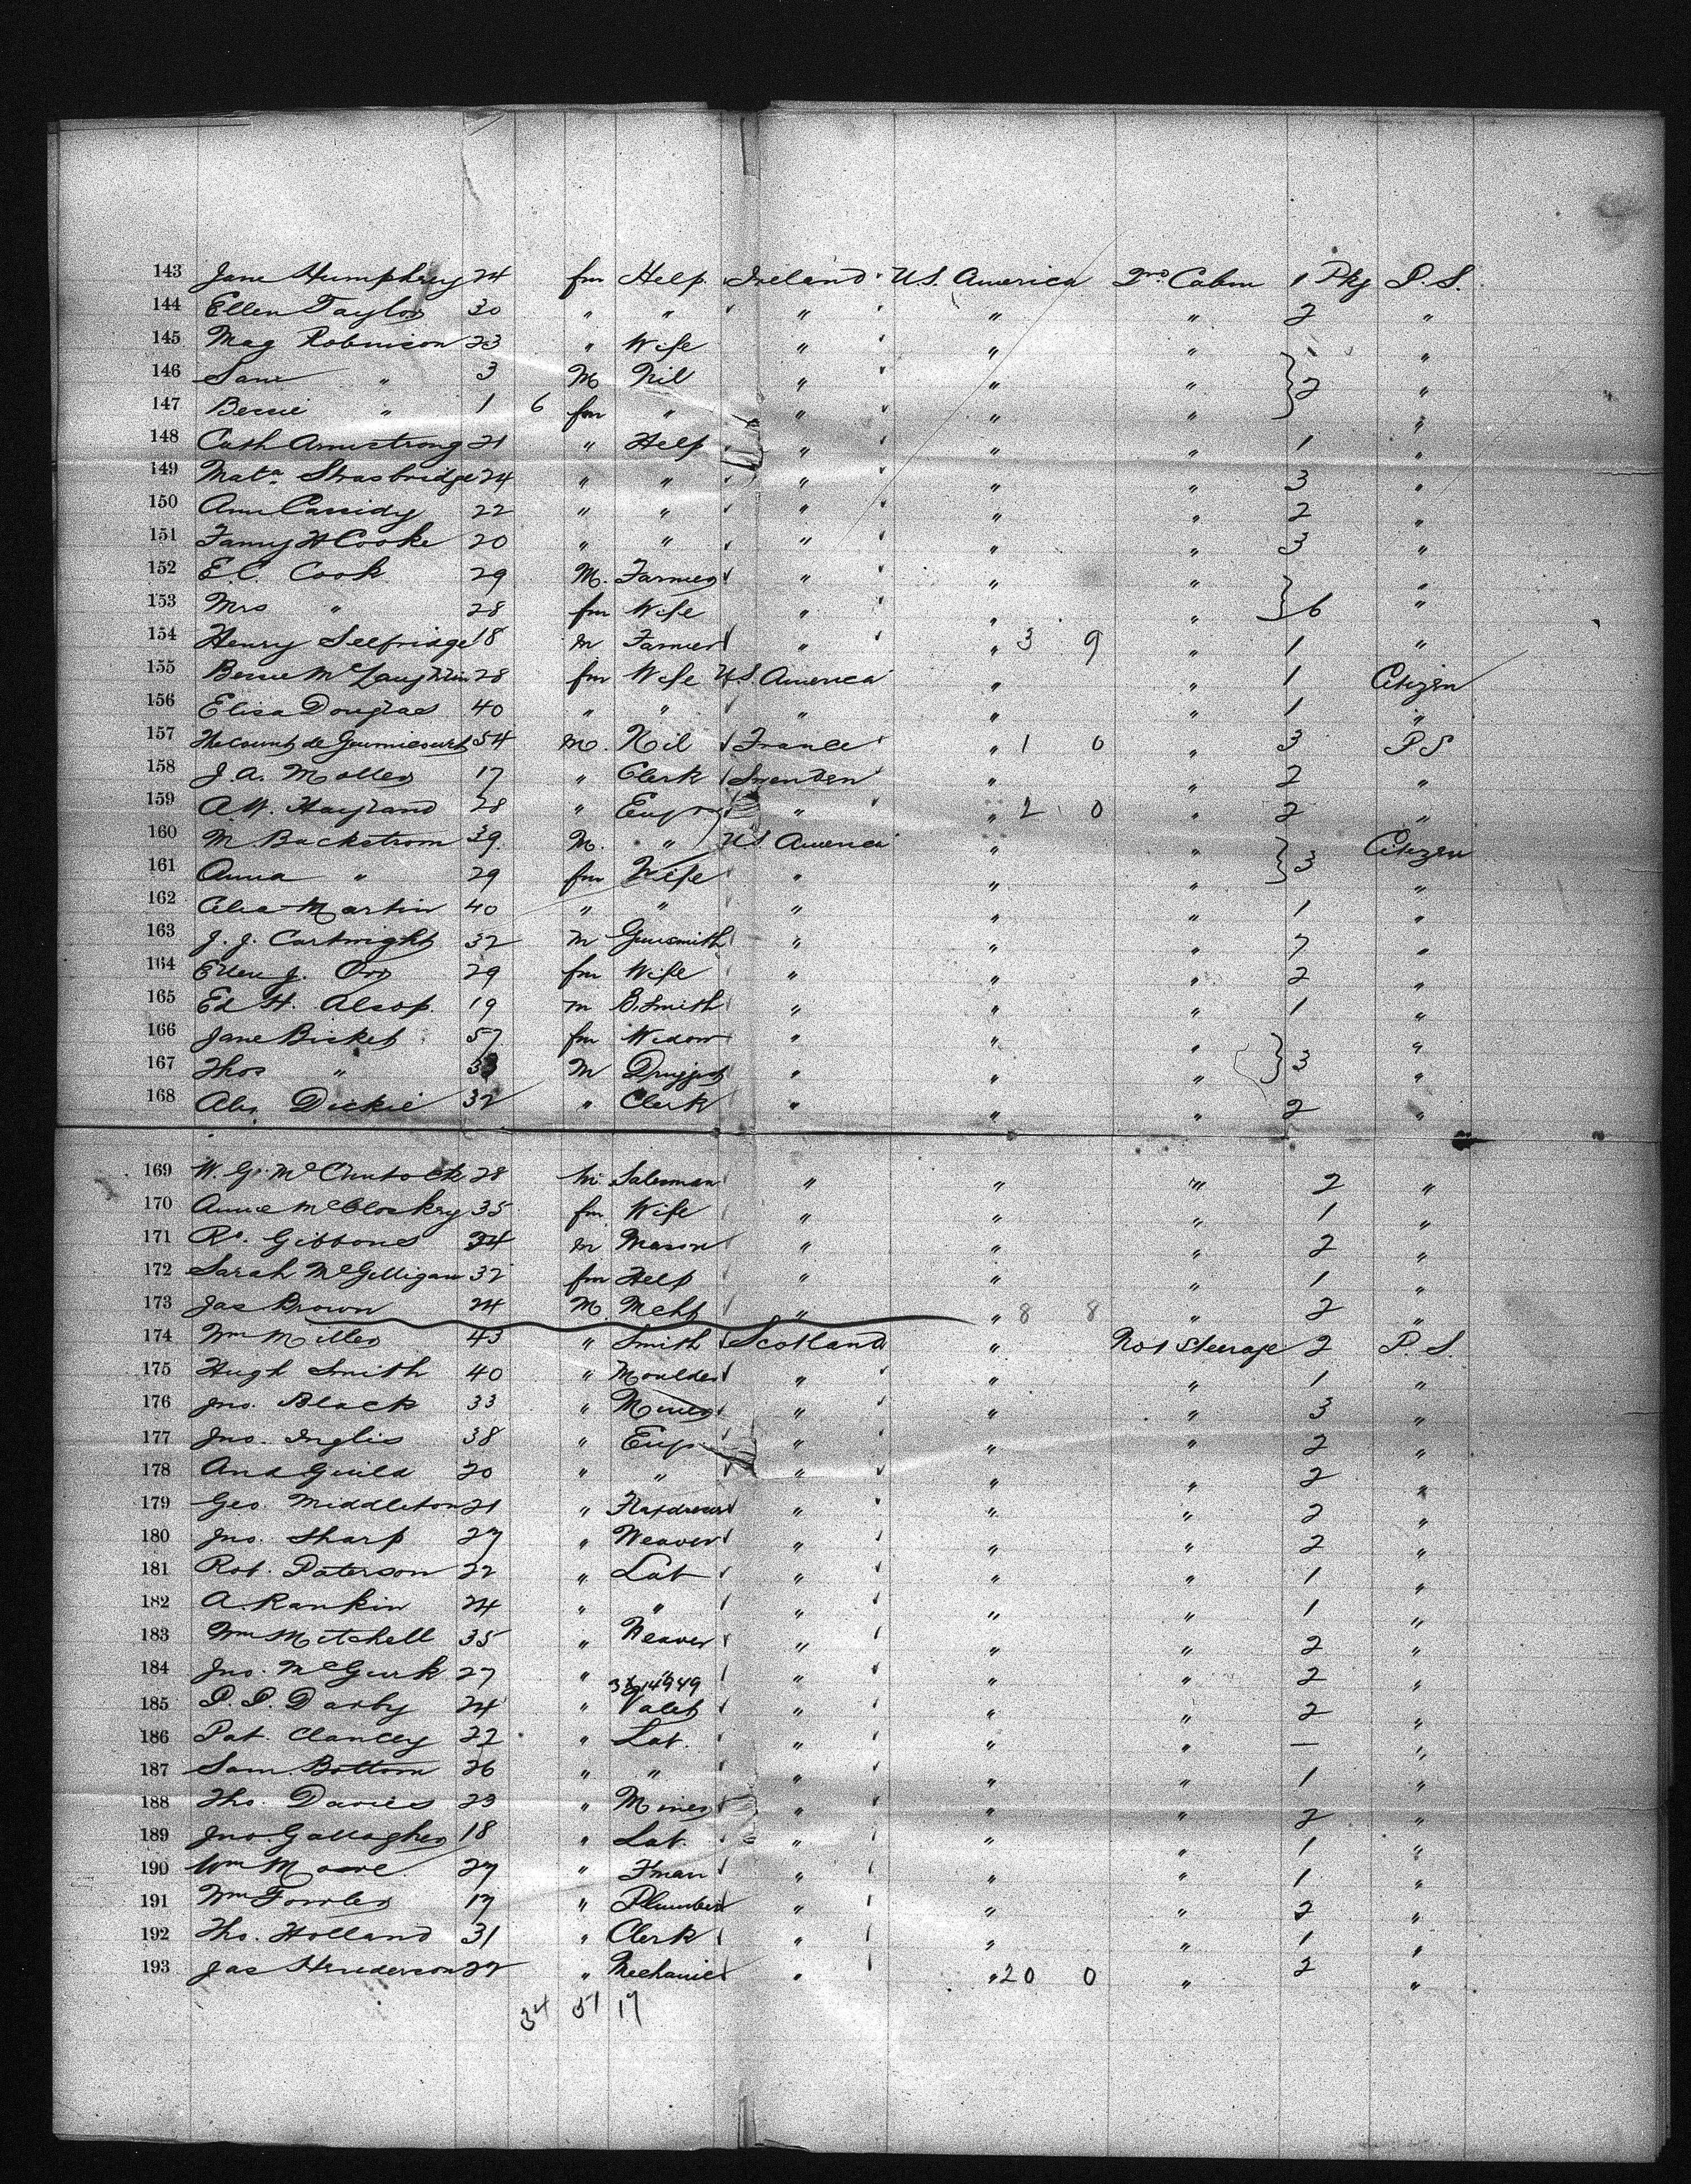 143 Jane Humphrey 24 fm Help Ireland U.S. America 2nd Cabin 1 Pkg P.S.
144 Ellen Taylor 30 " " " " " 2 "
145 Mag Robinson 23 " Wife " " " "
146 Sam " 3 M Nil " " " 2 "
147 Bessie " 1 6 fm " " " " "
148 Cath Armstrong 21 " Help " " " 1 "
149 Mata. Strasbridge 24 " " " " " 3 "
150 Ann Cassidy 22 " " " " " 2 "
151 Fanny H Cooke 20 " " " " " 3 "
152 E.C. Cook 29 M. Farmer " " " "
153 Mrs " 28 fm Wife " " " 6 "
154 Henry Selfridge 18 m Farmer " " 3 9 " 1 "
155 Bessie McLaughlin 28 fm Wife U.S. America " " 1 Citizen
156 Elisa Douglas 40 " " " " " 1 "
157 de 54 m. Nil France " 1 0 " 3 PS
158 J.A. Moller 17 " Clerk Sweden " " 2 "
159 28 " Engr " " 2 0 " 2 "
160 M. Backstrom 39 M. " US America " " 3 Citizen
161 Anna " 29 fm Wife " " " "
162 Martin 40 " " " " " 1 "
163 J.J. Cartwright 32 m Gunsmith " " " 7 "
164 Ellen J. Orr 29 fm Wife " " " 2 "
165 Ed H. Alsop. 19 m B.Smith " " " 1 "
166 Jane Bicket 57 fm Widow " " " "
167 Thos " M Druggist " " " 3 "
168 Alex. Dickie 32 " Clerk " " " 2 "
169 W. G. 28 m Salesman " " " 2 "
170 Annie McCloskey 35 fm Wife " " " 1 "
171 Rt. Gibbons 34 m Mason " " " 2 "
172 Sarah McGilligan 32 fm Help " " " 1 "
173 Jas Brown 24 M. Mcht " " 8 8 " 2 "
174 Wm Miller 43 " Smith Scotland " No 1 Steerage 2 P.S.
175 Hugh Smith 40 " Moulder " " " 1 "
176 Jno. Black 33 " Miner " " " 3 "
177 Jno. Inglis 38 " Engr " " " 2 "
178 And Guild 20 " " " " " 2 "
179 Geo. Middleton 21 " Flaxdresser " " " 2 "
180 Jno. Sharp 27 " Weaver " " " 2 "
181 Rob. Paterson 22 " Lab " " " 1 "
182 A. Rankin 24 " " " " " 1 "
183 Wm Mitchell 35 " Weaver " " " 2 "
184 Jno. McGurk 27 " " " " " 2 "
185 P.P. Darby 24 " Valet " " " 2 "
186 Pat. Clancey 22 " Lab. " " " — "
187 Sam. Bottom 26 " " " " " 1 "
188 Tho. Davies 23 " Miner " " " 2 "
189 Jno. Gallagher 18 " Lab. " " " 1 "
190 Wm Moore 27 " F'man " " " 1 "
191 Wm Fowler 17 " Plumber " " " 2 "
192 Tho. Holland 31 " Clerk " " " 1 "
193 Jas Henderson 22 " Mechanic " " 20 0 " 2 "
34 51 17